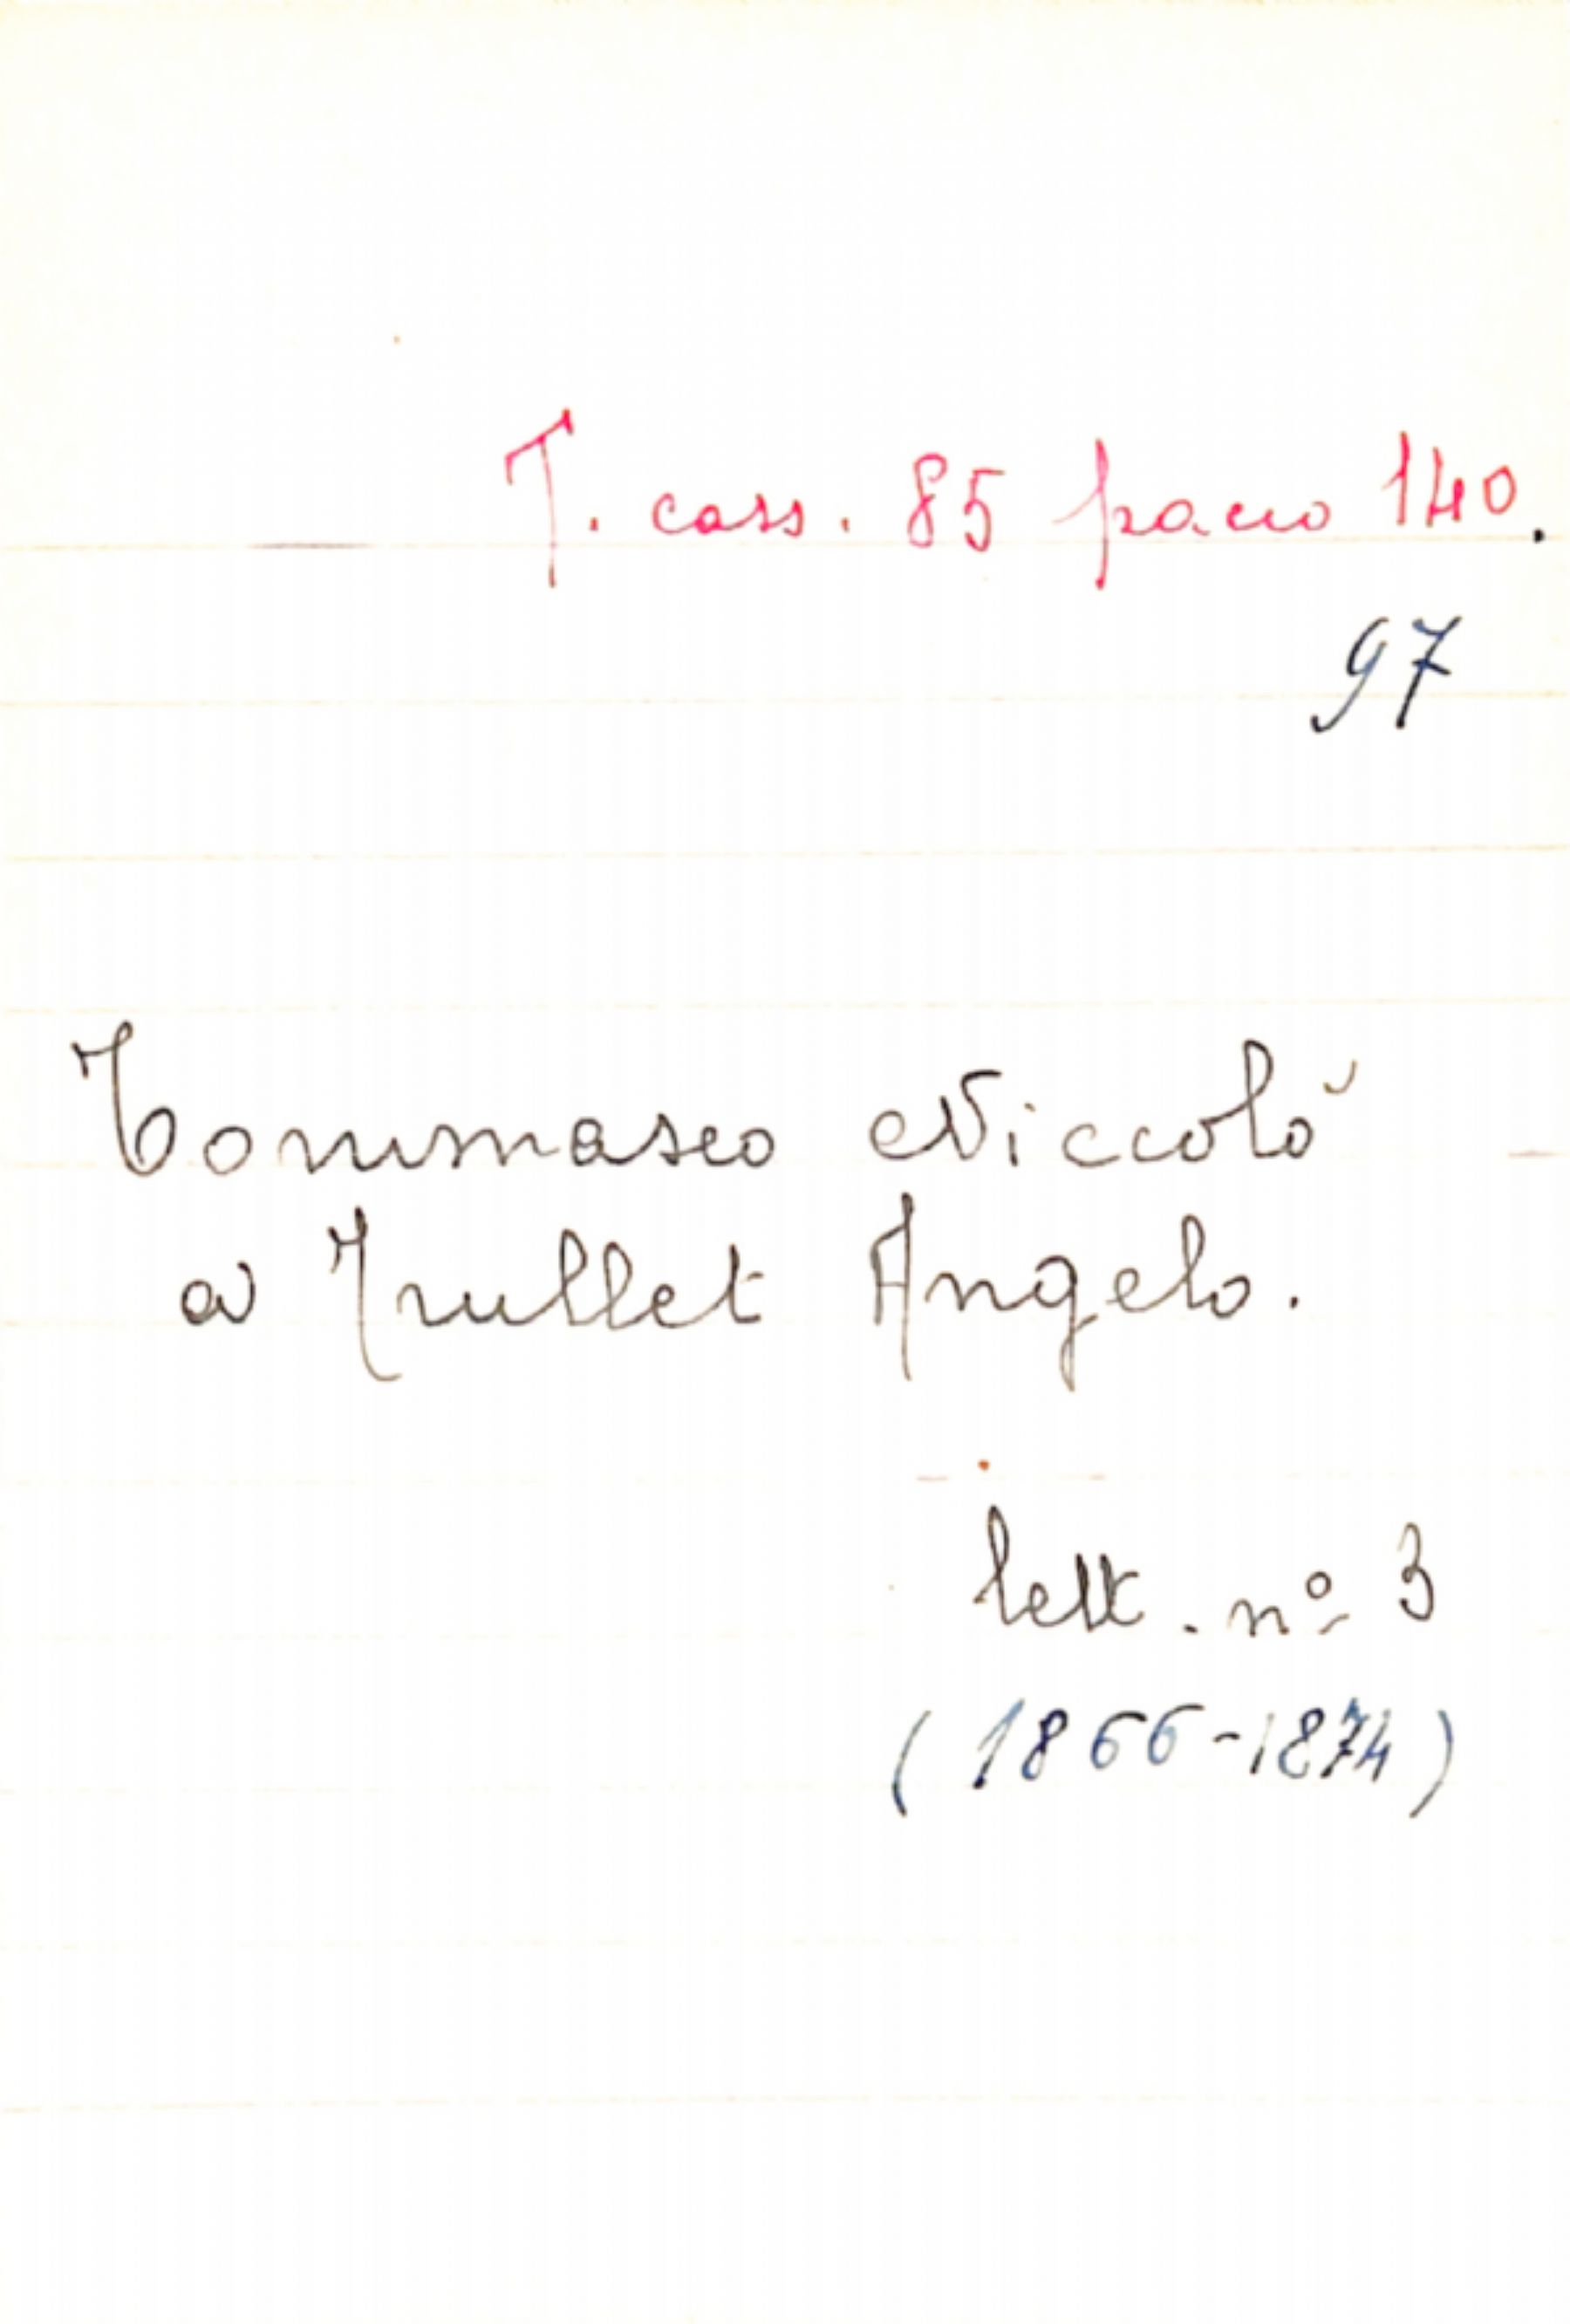 T. cass. 85 pacco 140.
97
Tommaseo Niccolò
a Trullet Angelo.
lett. nº 3
(1866-1874)